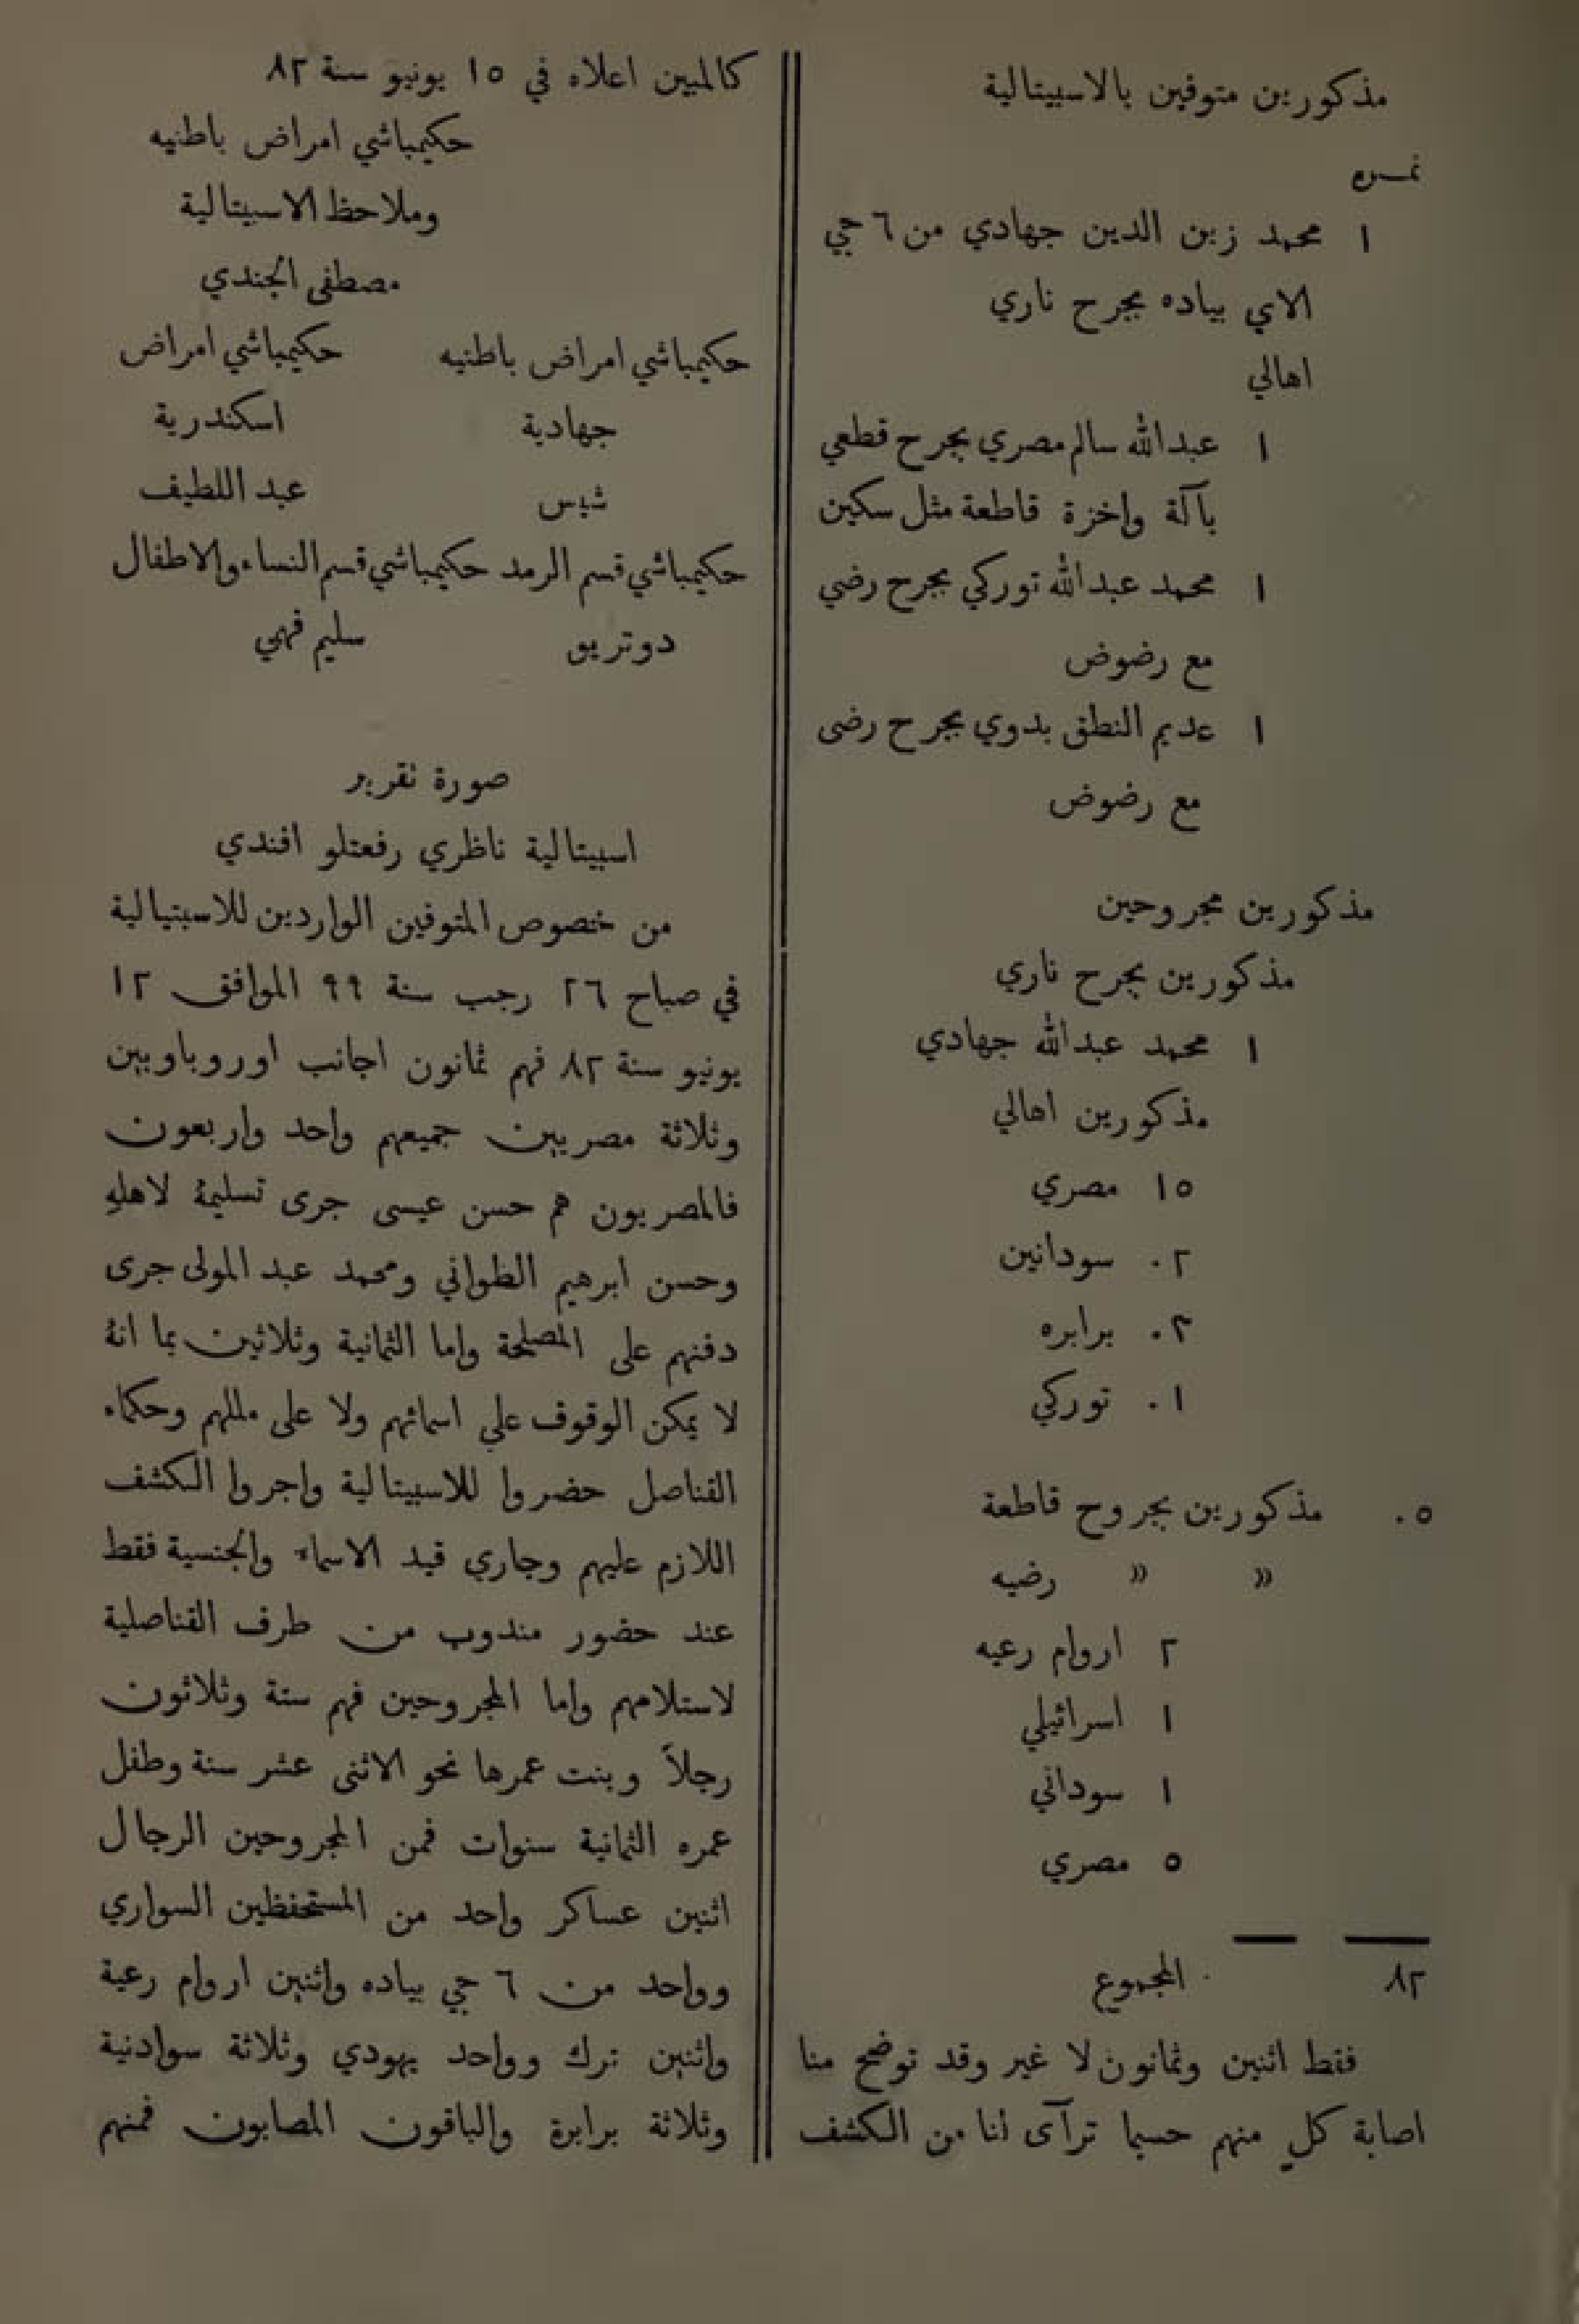 مذكورين متوفين بالاسبيتالية
نمره
١ محمد زين الدين جهادي من ٦ جي
الاي بياده بجرح ناري
اهالي
١ عبدالله سالم مصري بجرح قطعي
بآلة واخزة قاطعة مثل سكين
١ محمد عبدالله توركي بجرح رضي
مع رضوض
١ عديم النطق بدوي بجرح رضى
مع رضوض
مذكورين مجروحين
مذكورين بجرح ناري
١ محمد عبدالله جهادي
مذكورين اهالي
١٥ مصري
٠٢ سودانين
٠٣ برابره
٠١ توركي
٠٥ مذكورين بجروح قاطعة
» » رضيه
٢ اروام رعيه
١ اسرائيلي
١ سوداني
٥ مصري
٨٢ المجموع
فقط اثنين وثمانون لا غير وقد توضح منا
اصابة كلٍ منهم حسبما ترآى لنا من الكشف
كالمبين اعلاه في ١٥ يونيو سنة ٨٢
حكيمباشي امراض باطنيه
وملاحظ الاسبيتالية
مصطفى الجندي
حكيمباشي امراض باطنيه حكيمباشي امراض
جهادية اسكندرية
عبد اللطيف
حكيمباشي قسم الرمد حكيمباشي قسم النساء والاطفال
دوتريو سليم فهمي
صورة تقرير
اسبيتالية ناظري رفعتلو افندي
من خصوص المتوفين الواردين للاسبتيالية
في صباح ٢٦ رجب سنة ٩٩ الموافق ١٢
يونيو سنة ٨٢ فهم ثمانون اجانب اوروباويين
وثلاثة مصريين جميعهم واحد واربعون
فالمصريون هم حسن عيسى جرى تسليمهُ لاهلهِ
وحسن ابرهيم الظواني ومحمد عبد المولى جرى
دفنهم على المصلحة واما الثمانية وثلاثين بما انهُ
لا يمكن الوقوف علي اسمائهم ولا على مللهم وحكماء
القناصل حضروا للاسبيتالية واجروا الكشف
اللازم عليهم وجاري قيد الاسماء والجنسية فقط
عند حضور مندوب من طرف القناصلية
لاستلامهم واما المجروحين فهم ستة وثلاثون
رجلاً وبنت عمرها نحو الاثنى عشر سنة وطفل
عمره الثمانية سنوات فمن المجروحين الرجال
اثنين عساكر واحد من المستحفظين السواري
وواحد من ٦ جي بياده واثنين اروام رعية
واثنين ترك وواحد يهودي وثلاثة سوادنية
وثلاثة برابرة والباقون المصابون فمنهم